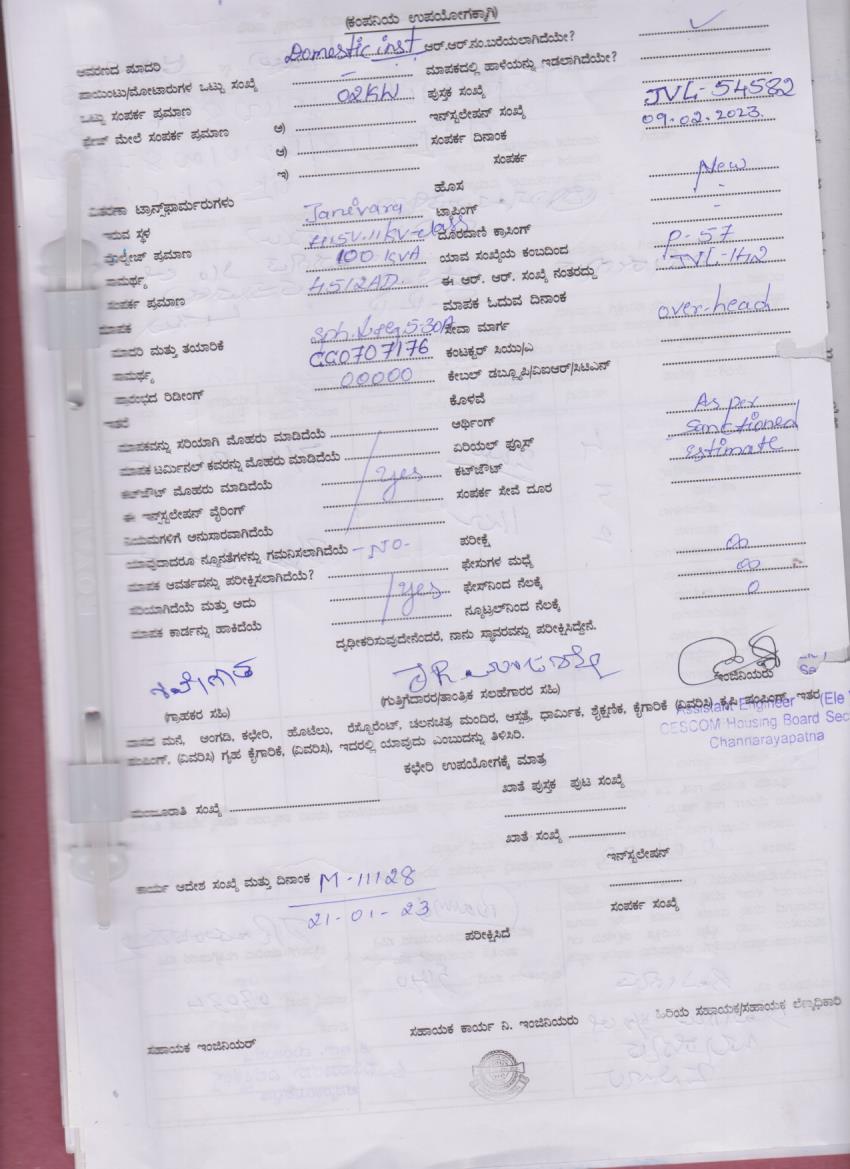 (ಕಂಪನಿಯ ಉಪಯೋಗಕ್ಕಾಗಿ)
ಆವರಣದ ಮಾದರಿ Domestic inst. ಆರ್.ಆರ್.ನಂ.ಬರೆಯಲಾಗಿದೆಯೇ? ✓
ಪಾಯಿಂಟು/ಮೋಟಾರುಗಳ ಒಟ್ಟು ಸಂಖ್ಯೆ - ಮಾಪಕದಲ್ಲಿ ಹಾಳೆಯನ್ನು ಇಡಲಾಗಿದೆಯೇ?
ಒಟ್ಟು ಸಂಪರ್ಕ ಪ್ರಮಾಣ 02KW ಪುಸ್ತಕ ಸಂಖ್ಯೆ
ಫೇಜ್ ಮೇಲೆ ಸಂಪರ್ಕ ಪ್ರಮಾಣ ಅ) ಇನ್‌ಸ್ಟಲೇಷನ್ ಸಂಖ್ಯೆ JVL-54582
ಆ) ಸಂಪರ್ಕ ದಿನಾಂಕ 09.02.2023
ಇ) ಸಂಪರ್ಕ
ವಿತರಣಾ ಟ್ರಾನ್ಸ್‌ಫಾರ್ಮರುಗಳು ಹೊಸ New
ಇರುವ ಸ್ಥಳ Janivara ಟ್ಯಾಪಿಂಗ್ -
ವೋಲ್ಟೇಜ್ ಪ್ರಮಾಣ 415V.11KV-class ದೂರವಾಣಿ ಕ್ರಾಸಿಂಗ್ -
ಸಾಮರ್ಥ್ಯ 100 KVA ಯಾವ ಸಂಖ್ಯೆಯ ಕಂಬದಿಂದ P-57
ಸಂಪರ್ಕ ಪ್ರಮಾಣ 4512AD. ಈ ಆರ್. ಆರ್. ಸಂಖ್ಯೆ ನಂತರದ್ದು JVL-142
ಮಾಪಕ ಮಾಪಕ ಓದುವ ದಿನಾಂಕ
ಮಾದರಿ ಮತ್ತು ತಯಾರಿಕೆ 5-30A ಸೇವಾ ಮಾರ್ಗ over-head
ಸಾಮರ್ಥ್ಯ CC0707176 ಕಂಟಕ್ಟರ್ ಸಿಯು/ಎ
ಪ್ರಾರಂಭದ ರಿಡೀಂಗ್ 00000 ಕೇಬಲ್ ಡಬ್ಲ್ಯೂಪಿ/ವಿಐಆರ್/ಸಿಟಿಎಸ್
ಇತರೆ ಕೊಳವೆ
ಮಾಪಕವನ್ನು ಸರಿಯಾಗಿ ಮೊಹರು ಮಾಡಿದೆಯೆ ಆರ್ಥಿಂಗ್ As per
ಮಾಪಕ ಟರ್ಮಿನಲ್ ಕವರನ್ನು ಮೊಹರು ಮಾಡಿದೆಯೆ ಏರಿಯಲ್ ಫ್ಯೂಸ್ sanctioned
ಕಟ್‌ಔಟ್ ಮೊಹರು ಮಾಡಿದೆಯೆ yes ಕಟ್‌ಔಟ್ estimate
ಈ ಇನ್‌ಸ್ಟಲೇಷನ್ ವೈರಿಂಗ್ ಸಂಪರ್ಕ ಸೇವೆ ದೂರ
ನಿಯಮಗಳಿಗೆ ಅನುಸಾರವಾಗಿದೆಯೆ
ಯಾವುದಾದರೂ ನ್ಯೂನತೆಗಳನ್ನು ಗಮನಿಸಲಾಗಿದೆಯೆ -NO- ಪರೀಕ್ಷೆ
ಮಾಪಕ ಆವರ್ತವನ್ನು ಪರೀಕ್ಷಿಸಲಾಗಿದೆಯೆ? ಫೇಸುಗಳ ಮಧ್ಯೆ ∞
ಸರಿಯಾಗಿದೆಯೆ ಮತ್ತು ಅದು yes ಫೇಸ್‌ನಿಂದ ನೆಲಕ್ಕೆ ∞
ಮಾಪಕ ಕಾರ್ಡನ್ನು ಹಾಕಿದೆಯೆ ನ್ಯೂಟ್ರಲ್‌ನಿಂದ ನೆಲಕ್ಕೆ 0
ದೃಢೀಕರಿಸುವುದೇನೆಂದರೆ, ನಾನು ಸ್ಥಾವರವನ್ನು ಪರೀಕ್ಷಿಸಿದ್ದೇನೆ.
(ಗ್ರಾಹಕರ ಸಹಿ) (ಗುತ್ತಿಗೆದಾರರ/ತಾಂತ್ರಿಕ ಸಲಹೆಗಾರರ ಸಹಿ) ಇಂಜಿನಿಯರು
Assistant Engineer (Ele
CESCOM Housing Board Sec
Channarayapatna
ವಾಸದ ಮನೆ, ಅಂಗಡಿ, ಕಛೇರಿ, ಹೊಟೆಲು, ರೆಸ್ಟೊರೆಂಟ್, ಚಲನಚಿತ್ರ ಮಂದಿರ, ಆಸ್ಪತ್ರೆ, ಧಾರ್ಮಿಕ, ಶೈಕ್ಷಣಿಕ, ಕೈಗಾರಿಕೆ (ವಿವರಿಸಿ) ಕೃಷಿ ಪಂಪಿಂಗ್, ಇತರ
ಪಂಪಿಂಗ್, (ವಿವರಿಸಿ) ಗೃಹ ಕೈಗಾರಿಕೆ, (ವಿವರಿಸಿ), ಇದರಲ್ಲಿ ಯಾವುದು ಎಂಬುದನ್ನು ತಿಳಿಸಿರಿ.
ಕಛೇರಿ ಉಪಯೋಗಕ್ಕೆ ಮಾತ್ರ
ಮಂಜೂರಾತಿ ಸಂಖ್ಯೆ ಖಾತೆ ಪುಸ್ತಕ ಪುಟ ಸಂಖ್ಯೆ
ಖಾತೆ ಸಂಖ್ಯೆ
ಇನ್‌ಸ್ಟಲೇಷನ್
ಕಾರ್ಯ ಆದೇಶ ಸಂಖ್ಯೆ ಮತ್ತು ದಿನಾಂಕ M-11128
21-01-23
ಸಂಪರ್ಕ ಸಂಖ್ಯೆ
ಪರೀಕ್ಷಿಸಿದೆ
ಸಹಾಯಕ ಇಂಜಿನಿಯರ್ ಸಹಾಯಕ ಕಾರ್ಯ ನಿ. ಇಂಜಿನಿಯರು ಹಿರಿಯ ಸಹಾಯಕ/ಸಹಾಯಕ ಲೆಕ್ಕಾಧಿಕಾರಿ